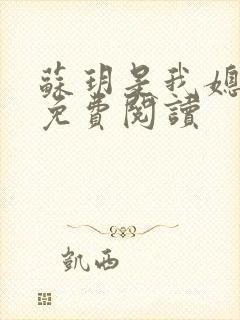 蘇玥是我媳
免費閱讀
凱西